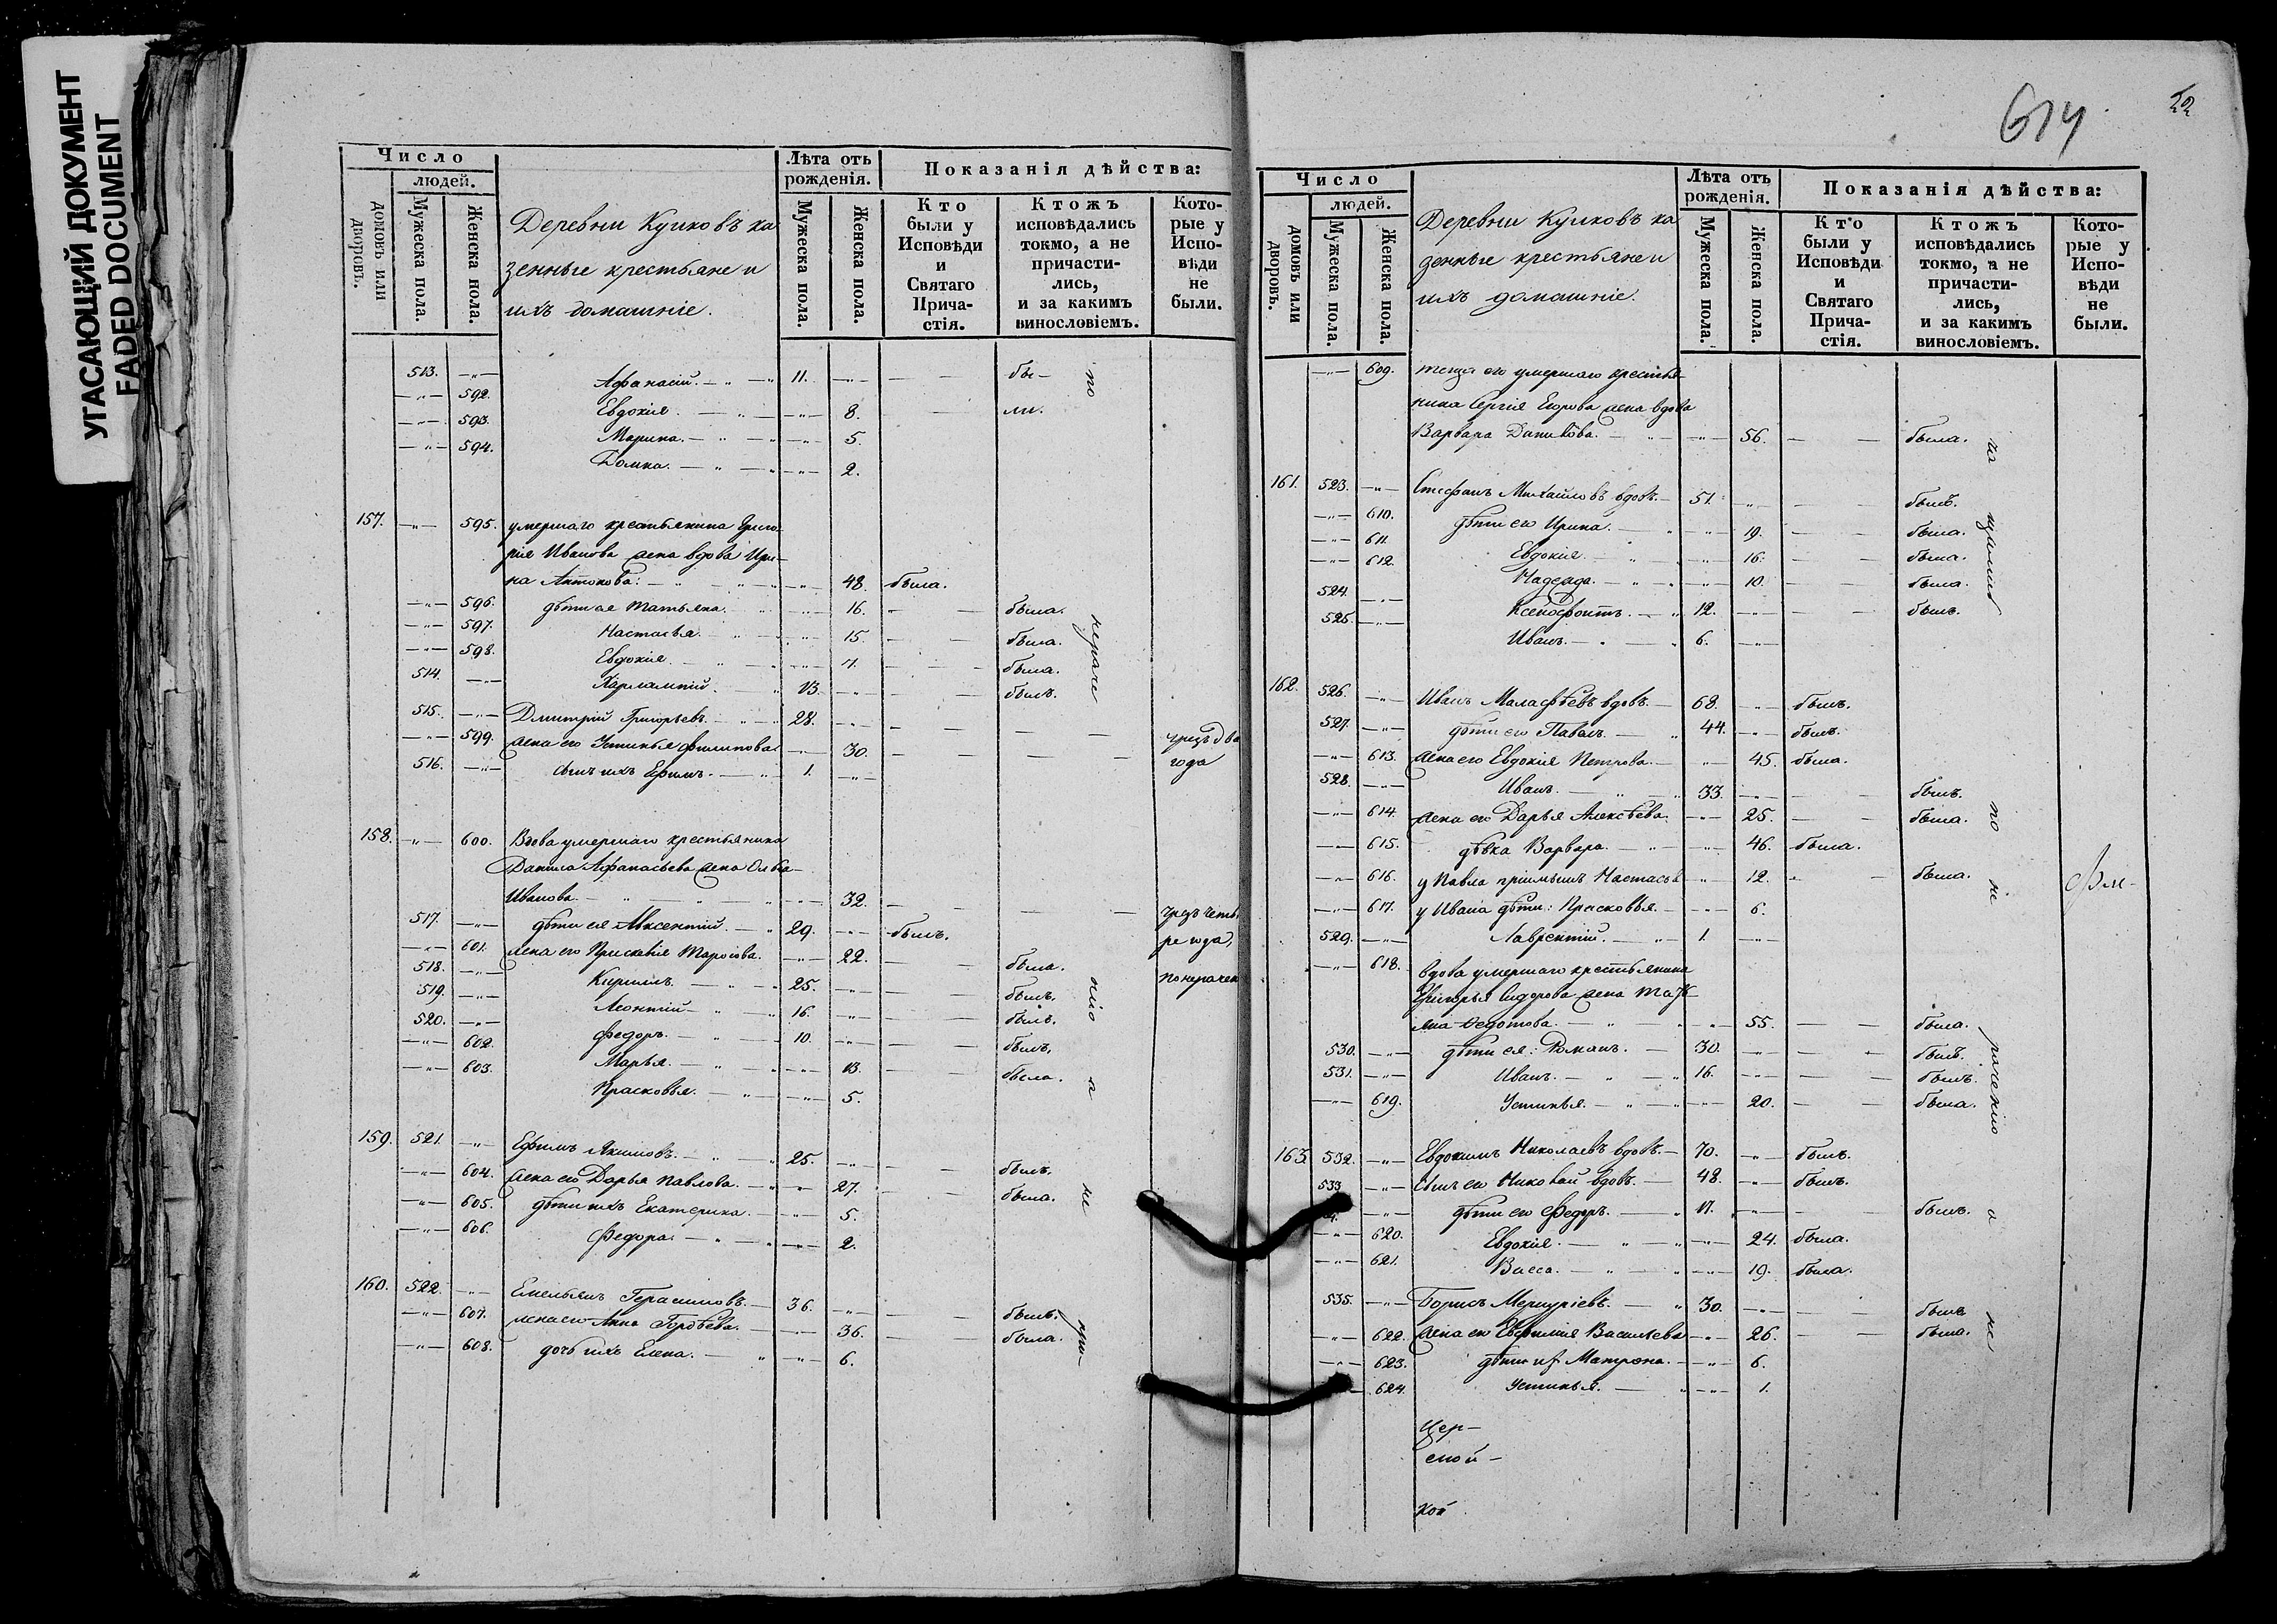 УГАСАЮЩИЙ ДОКУМЕНТ
FADED DOCUMENT
Число
людей.
домовъ или дворовъ.
Мужеска пола.
Женска пола.
Деревни Куликовъ ка
зенные крестьяне и
ихъ домашніе.
Лѣта отъ
рожденія.
Мужеска пола.
Женска пола.
Показанія дѣйства:
Кто
были у
Исповѣди
и
Святаго
Прича-
стія.
Ктожъ
исповѣдались
токмо, а не
причасти-
лись,
и за какимъ
винословіемъ.
Кото-
рые у
Испо-
вѣди
не
были.
513. Аѳанасій. 11. бы-
592. Евдокія. 8. ли.
593. Марина. 5.
594. Домна. 2.
по
157. 595. умершаго крестьянина Григо-
рія Иванова жена вдова Ири-
на Антонова: 48. была.
596. дѣти ея Татьяна. 16. была.
597. Настасья. 15. была.
598. Евдокія. 11. была.
514. Харлампій. 13. былъ.
515. Дмитрій Григорьевъ. 28.
599. жена его Устинья Филипова 30. чрезъ два
516. сынъ ихъ Ефимъ. 1. года
нераче
158. 600. Вдова умершаго крестьянина
Данила Афанасьева жена Ольга
Иванова 32. чрезъ четы
517. дѣти ея Авксентій. 29. былъ. ре года,
601. жена его Прискавія Тарасова. 22. была. понерачен
518. Кирилъ. 25. былъ.
519. Леонтій 16. былъ.
520. Федоръ. 10. былъ,
602. Марья. 13. была.
603. Прасковья. 5.
нію а
159. 521. Ефимъ Якимовъ. 25. былъ.
604. жена его Дарья Павлова. 27. была.
605. дѣти ихъ Екатерина. 5.
606. Федора. 2.
не
160. 522. Емельянъ Герасимовъ. 36. былъ.
607. жена его Анна Гордѣева. 36. была.
608. дочь ихъ Елена. 6.
614
22
Число
людей.
домовъ или дворовъ.
Мужеска пола.
Женска пола.
Деревни Куликовъ ка
зенные крестьяне и
ихъ домашніе.
Лѣта отъ
рожденія.
Мужеска пола.
Женска пола.
Показанія дѣйства:
Кто
были у
Исповѣди
и
Святаго
Прича-
стія.
Ктожъ
исповѣдались
токмо, а не
причасти-
лись,
и за какимъ
винословіемъ.
Кото-
рые у
Испо-
вѣди
не
были.
609. теща его умершаго крестья-
нина Сергія Егорова жена вдова
Варвара Данилова. 56. была.
161. 523. Стефанъ Михайловъ вдовъ. 51. былъ.
610. дѣти его Ирина. 19. была.
611. Евдокія. 16. была.
612. Надежда. 10. была.
524. Ксенофонтъ. 12. былъ.
525. Иванъ. 6.
162. 526. Иванъ Малафѣевъ вдовъ. 68. былъ.
527. дѣти его Павелъ. 44. былъ.
613. жена его Евдокія Петрова. 45. была.
528. Иванъ. 33. былъ.
614. жена его Дарья Алексѣева. 25. была.
615. дѣвка Варвара. 46. была.
616. у Павла пріимышъ Настасья 12. была.
617. у Ивана дѣти: Прасковья. 6.
529. Лаврентій. 1.
618. вдова умершаго крестьянина
Григорья Сидорова жена Татья-
яна Федотова. 55. была.
530. дѣти ея: Романъ. 30. былъ.
531. Иванъ. 16. былъ.
619. Устинья. 20. была.
по не
раченію
163. 532. Евдокимъ Николаевъ вдовъ. 70. былъ.
533. Сынъ его Николай вдовъ. 48. былъ.
дѣти его Федоръ. 17. былъ.
620. Евдокія. 24. была.
621. Васса. 19. была.
535. Борисъ Меркуріевъ. 30. былъ
622. жена его Евфимія Васильева 26. была.
623. дѣти их Матрона. 6.
624. Устинья. 1.
а
не
Цер-
ской